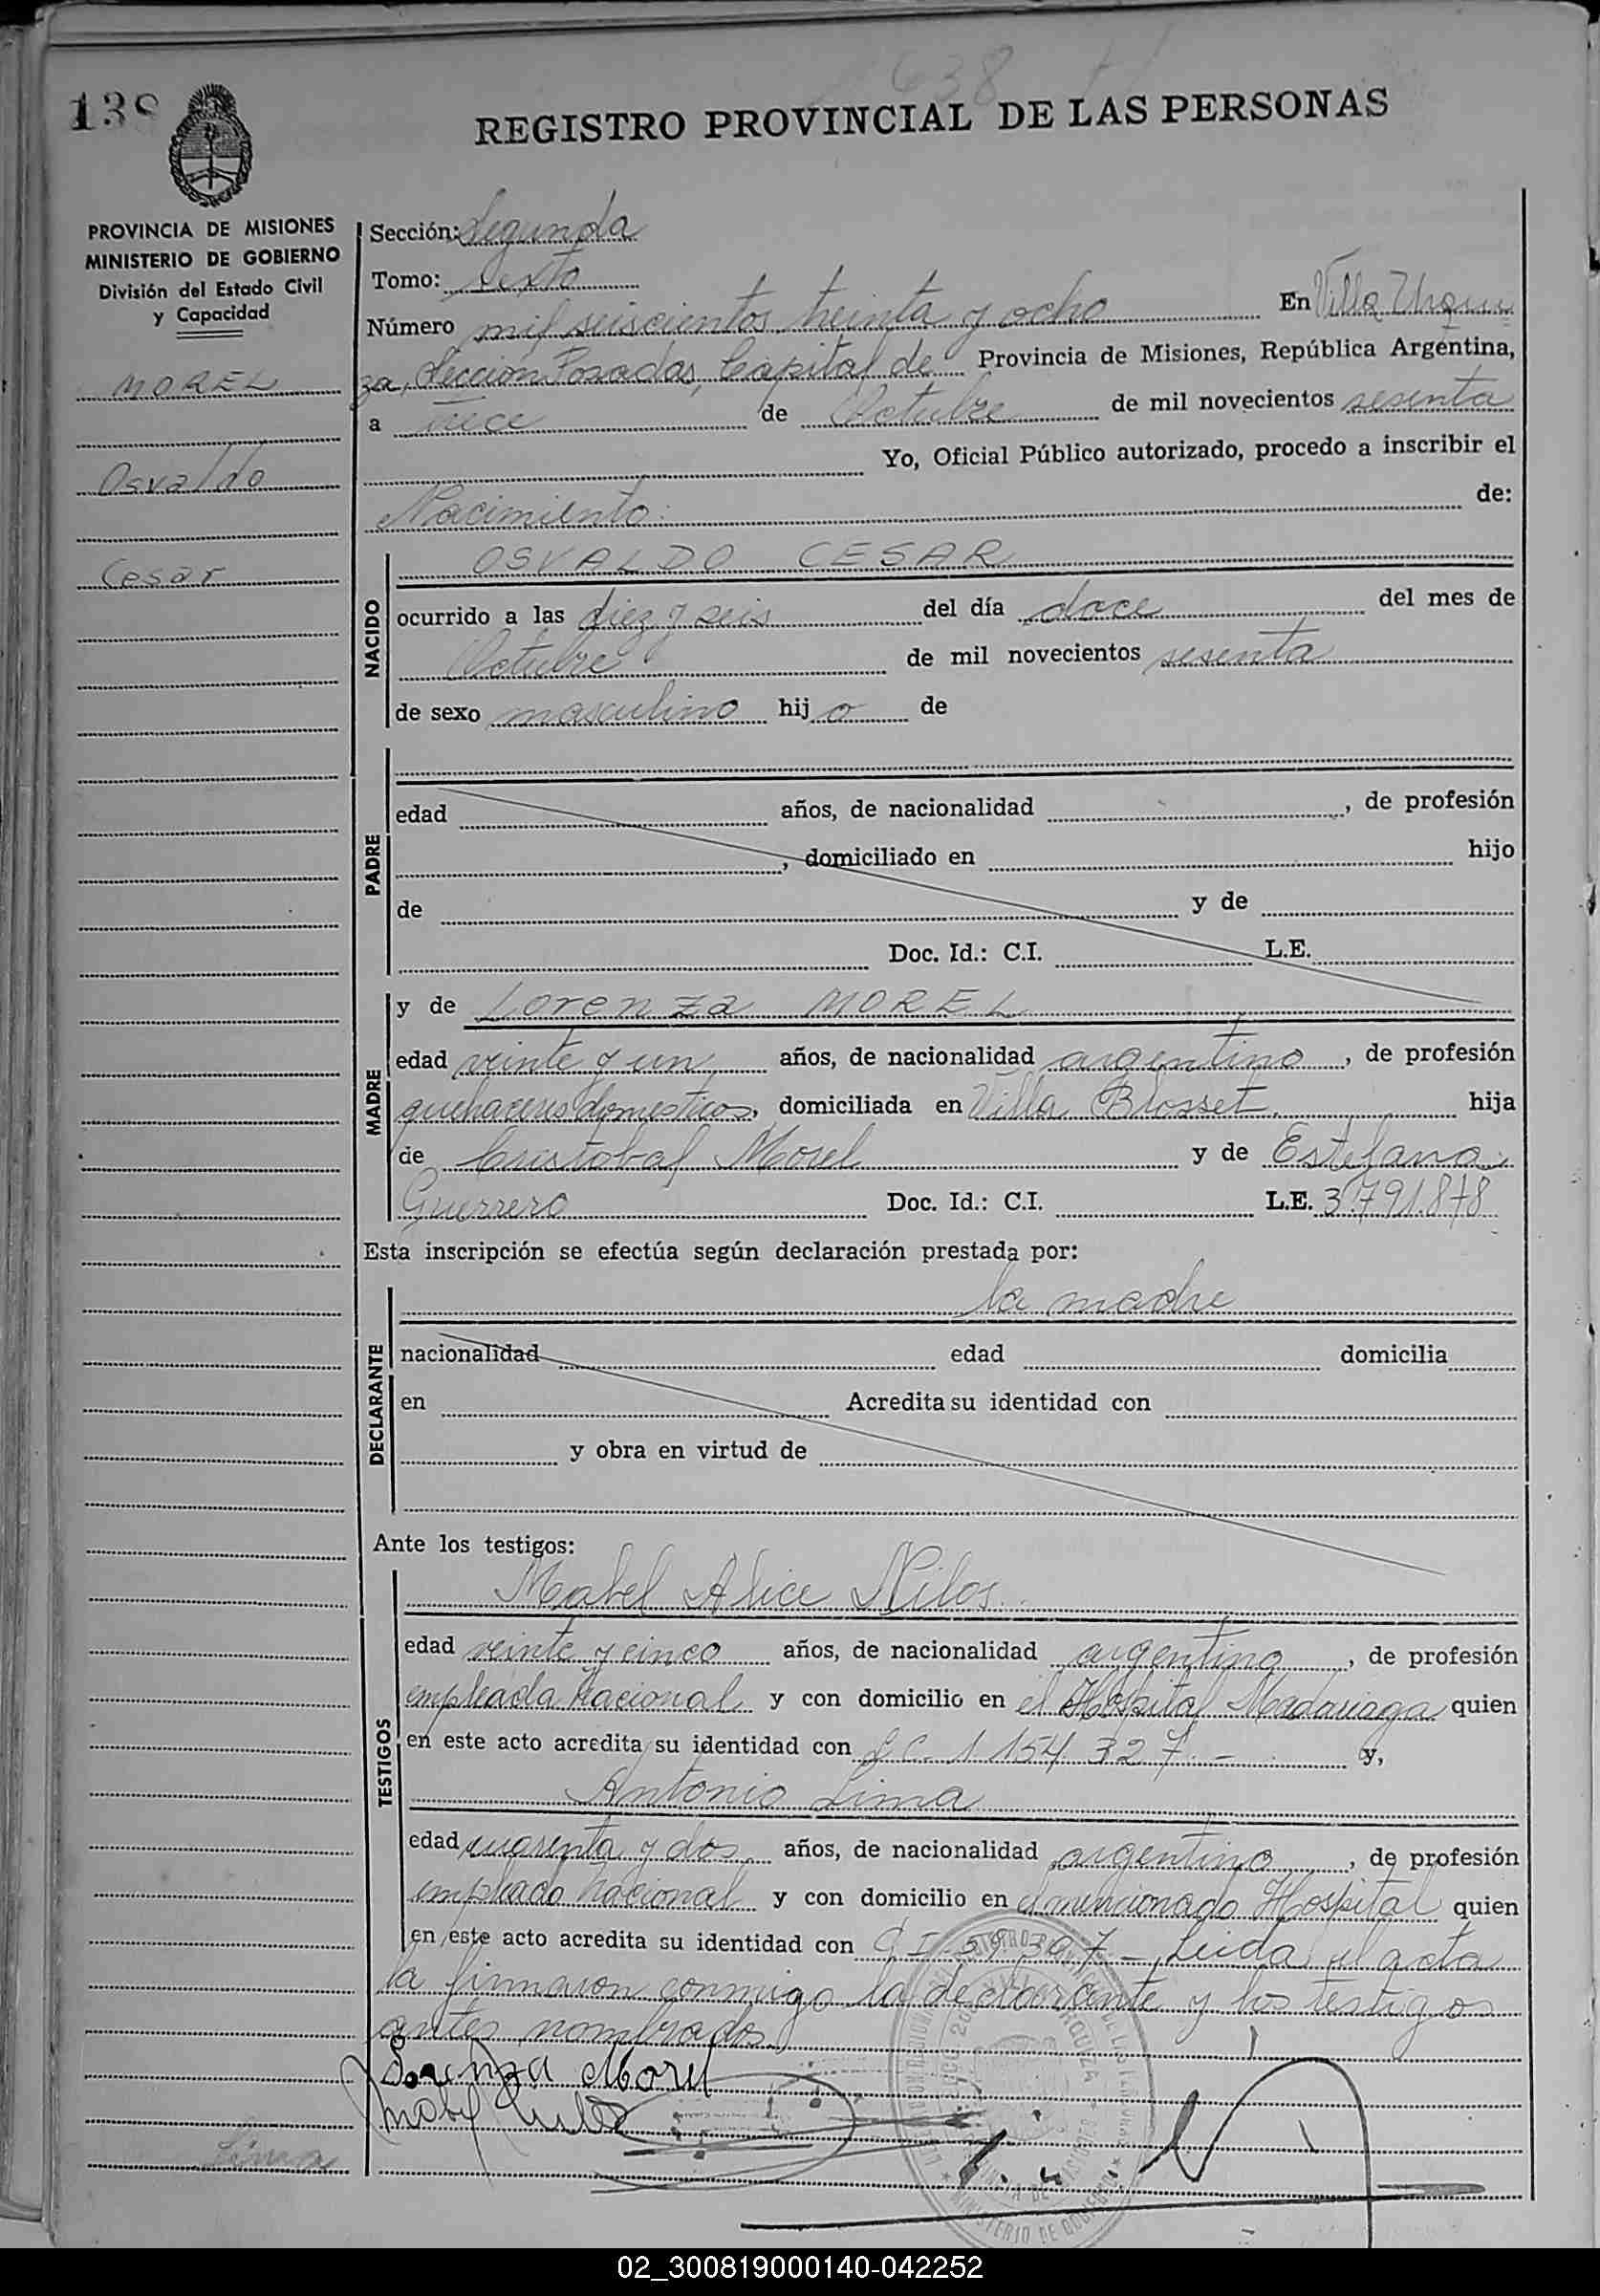 138
638
REGISTRO PROVINCIAL DE LAS PERSONAS
PROVINCIA DE MISIONES
MINISTERIO DE GOBIERNO
División del Estado Civil
y Capacidad
MOREL
Osvaldo
Cesar
Sección: Segunda
Tomo: Sexto
Número mil seiscientos treinta y ocho En Villa Urqui
za, Sección Posadas, Capital de Provincia de Misiones, República Argentina,
a trece de Octubre de mil novecientos sesenta
Yo, Oficial Público autorizado, procedo a inscribir el
Nacimiento: de:
NACIDO
OSVALDO CESAR
ocurrido a las diez y seis del día doce del mes de
Octubre de mil novecientos sesenta
de sexo masculino hijo de
PADRE
edad años, de nacionalidad , de profesión
, domiciliado en hijo
de y de
Doc. Id.: C.I. L.E.
MADRE
y de Lorenza MOREL
edad veinte y un años, de nacionalidad argentino, de profesión
quehaceres domesticos, domiciliada en Villa Blosset. hija
de Cristobal Morel y de Estefana
Guerrero Doc. Id.: C.I. L.E. 3.791.878
Esta inscripción se efectúa según declaración prestada por:
DECLARANTE
la madre
nacionalidad edad domicilia
en Acredita su identidad con
y obra en virtud de
Ante los testigos:
TESTIGOS
Mabel Alice Nilos
edad veinte y cinco años, de nacionalidad argentino, de profesión
empleada Nacional y con domicilio en el Hospital Madariaga quien
en este acto acredita su identidad con L C. 1.154.327.- y,
Antonio Lima
edad cuarenta y dos años, de nacionalidad argentino, de profesión
empleado Nacional y con domicilio en el mencionado Hospital quien
en este acto acredita su identidad con C I - Leida el acta
la firmaron conmigo la declarante y los testigos
antes nombrados.
Lorenza Morel
Mabel
Lima
MINISTERIO DE GOBIERNO
02_300819000140-042252